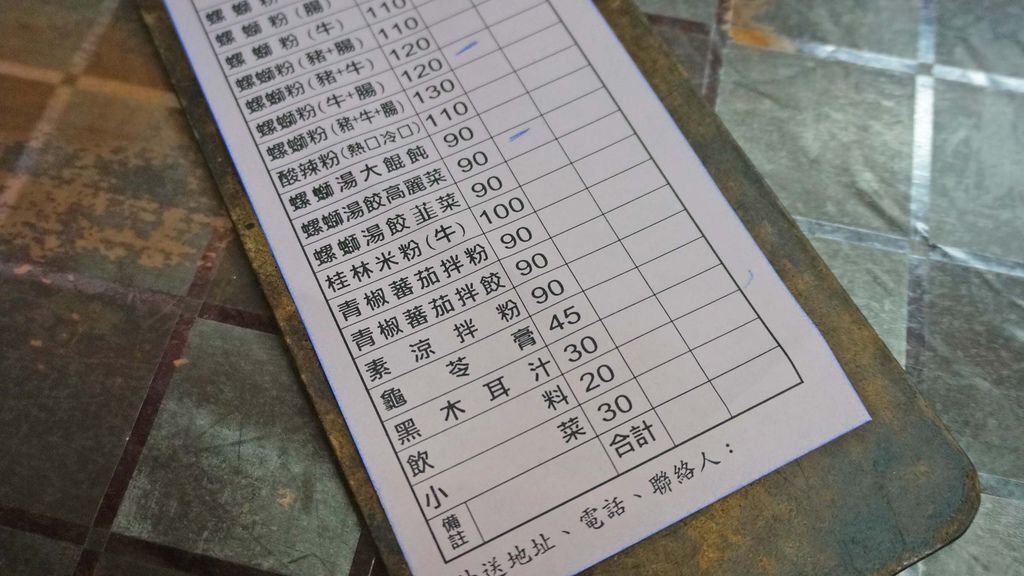 螺螄粉(腸)
螺螄粉(牛) 110
螺螄粉(豬+腸) 110
螺螄粉(豬+牛) 120
螺螄粉(牛+腸) 120
螺螄粉(豬+牛+腸) 130
酸辣粉(熱口冷口) 110
螺螄湯大餛飩 90
螺螄湯餃高麗菜 90
螺螄湯餃韮菜 90
桂林米粉(牛) 100
青椒蕃茄拌粉 90
青椒蕃茄拌餃 90
素涼拌粉 90
龜苓膏 45
黑木耳汁 30
飲料 20
小菜 30
備註 合計
送地址、電話、聯絡人：